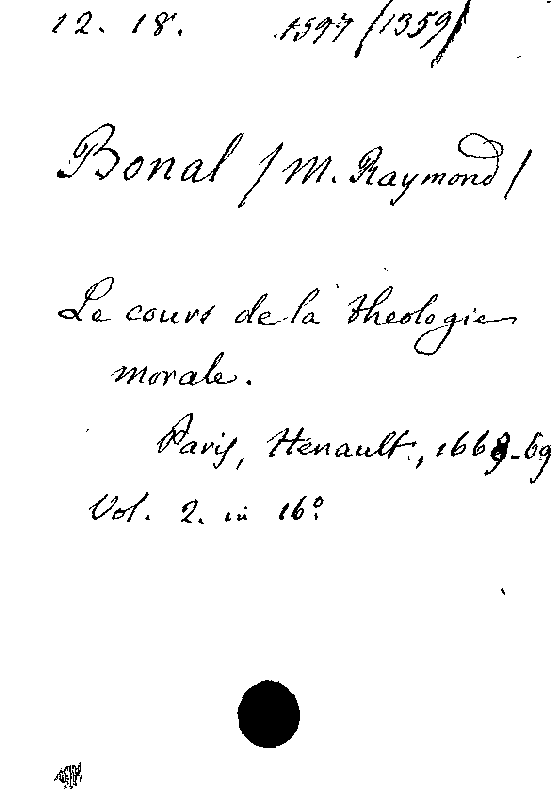 12. 18. 1597 (1359)
Bonal / M. Raymond /
Le cours de la theologie
morale.
Paris, Henault., 1668-69
Vol. 2. in 16º